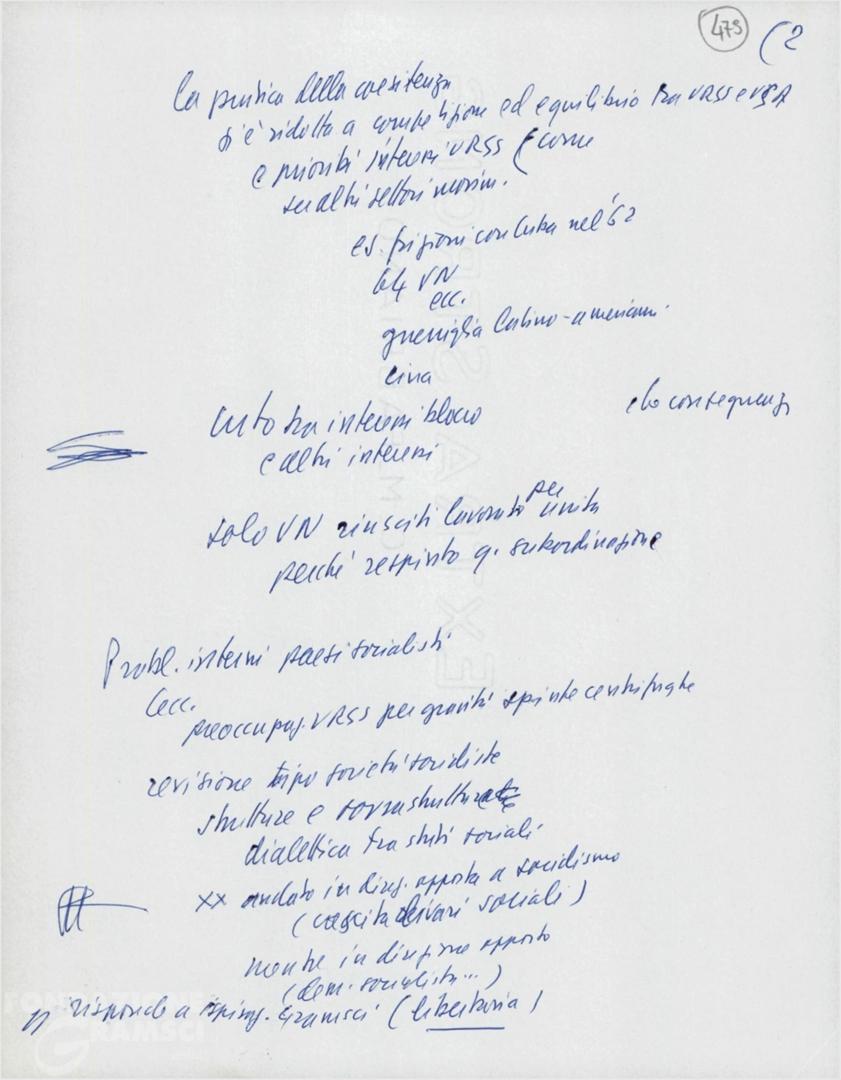 475 (2
la pratica della coesistenza
si è ridotta a competizione ed equilibrio tra URSS e USA
e priorità interessi URSS (come
su altri settori movim.
es. frizioni con Cuba nel '62
64 VN
ecc.
guerriglia latino-americani
cina
urto tra interessi blocco e lo conseguenze
e altri interessi
solo VN riusciti lavorato per unità
perché respinto q. subordinazione
Probl. interni paesi socialisti
Cecc.
preoccupaz. URSS per gravità spinte centrifughe
revisione tipo società socialiste
strutture e sovrastrutture
dialettica tra strati sociali
xx andato in direz. opposta a socialismo
(crescita divari sociali)
mentre in direzione opposta
(dem. socialista...)
risponde a ispiraz. Gramsci (libertaria)
FONDAZIONE
GRAMSCI